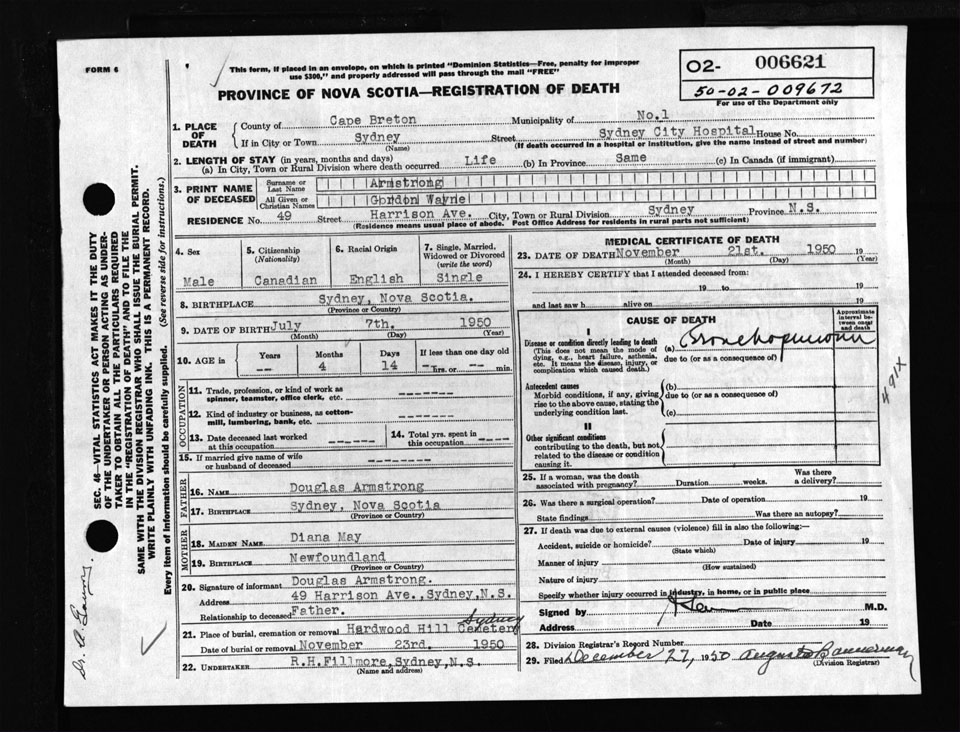 FORM 6
This form, if placed in an envelope, on which is printed "Dominion Statistics—Free, penalty for improper
use $300," and properly addressed will pass through the mail "FREE"
PROVINCE OF NOVA SCOTIA—REGISTRATION OF DEATH
O2- 006621
50-02-009672
For use of the Department only
1. PLACE OF DEATH
County of Cape Breton Municipality of No.1
If in City or Town Sydney Street Sydney City Hospital House No.
(Name) (If death occurred in a hospital or institution, give the name instead of street and number)
2. LENGTH OF STAY (in years, months and days)
(a) In City, Town or Rural Division where death occurred Life (b) In Province Same (c) In Canada (if immigrant)
3. PRINT NAME OF DECEASED
Surname or Last Name Armstrong
All Given or Christian Names Gordon Wayne
RESIDENCE No. 49 Street Harrison Ave. City, Town or Rural Division Sydney Province N.S.
(Residence means usual place of abode. Post Office Address for residents in rural parts not sufficient)
4. Sex
Male
5. Citizenship
(Nationality)
Canadian
6. Racial Origin
English
7. Single, Married,
Widowed or Divorced
(write the word)
Single
8. BIRTHPLACE Sydney, Nova Scotia.
(Province or Country)
9. DATE OF BIRTH July 7th. 1950
(Month) (Day) (Year)
10. AGE in Years Months Days If less than one day old
-- 4 14 -- hrs. or -- min.
OCCUPATION
11. Trade, profession, or kind of work as
spinner, teamster, office clerk, etc. ------
12. Kind of industry or business, as cotton-
mill, lumbering, bank, etc. ------
13. Date deceased last worked
at this occupation ------
14. Total yrs. spent in
this occupation ----
15. If married give name of wife
or husband of deceased ------
FATHER
16. NAME Douglas Armstrong
17. BIRTHPLACE Sydney, Nova Scotia
(Province or Country)
MOTHER
18. MAIDEN NAME Diana May
19. BIRTHPLACE Newfoundland
(Province or Country)
20. Signature of informant Douglas Armstrong.
Address 49 Harrison Ave.,Sydney,N.S.
Relationship to deceased Father.
21. Place of burial, cremation or removal Hardwood Hill Cemetery Sydney
Date of burial or removal November 23rd. 1950
22. UNDERTAKER R.H.Fillmore,Sydney,N.S.
(Name and address)
MEDICAL CERTIFICATE OF DEATH
23. DATE OF DEATH November 21st. 1950 19
(Month) (Day) (Year)
24. I HEREBY CERTIFY that I attended deceased from:
19 to 19
and last saw h alive on 19
CAUSE OF DEATH
Approximate interval between onset and death
I
Disease or condition directly leading to death
(This does not mean the mode of
dying, e.g., heart failure, asthenia,
etc. It means the disease, injury, or
complication which caused death.)
(a) Bronchopneumonia
due to (or as a consequence of)
Antecedent causes
Morbid conditions, if any, giving
rise to the above cause, stating the
underlying condition last.
(b)
due to (or as a consequence of)
(c)
II
Other significant conditions
contributing to the death, but not
related to the disease or condition
causing it.
491X
25. If a woman, was the death
associated with pregnancy? Duration weeks. Was there a delivery?
26. Was there a surgical operation? Date of operation 19
State findings Was there an autopsy?
27. If death was due to external causes (violence) fill in also the following:—
Accident, suicide or homicide? Date of injury 19
(State which)
Manner of injury
(How sustained)
Nature of injury
Specify whether injury occurred in industry, in home, or in public place
Signed by M.D.
Address Date 19
28. Division Registrar's Record Number
29. Filed December 27, 1950 Augusta Bannerman
(Division Registrar)
SEC. 46—VITAL STATISTICS ACT MAKES IT THE DUTY
OF THE UNDERTAKER OR PERSON ACTING AS UNDER-
TAKER TO OBTAIN ALL THE PARTICULARS REQUIRED
IN THE "REGISTRATION OF DEATH" AND TO FILE THE
SAME WITH THE DIVISION REGISTRAR WHO SHALL ISSUE THE BURIAL PERMIT.
WRITE PLAINLY WITH UNFADING INK. THIS IS A PERMANENT RECORD.
Every item of information should be carefully supplied. (See reverse side for instructions.)
Dr. A.